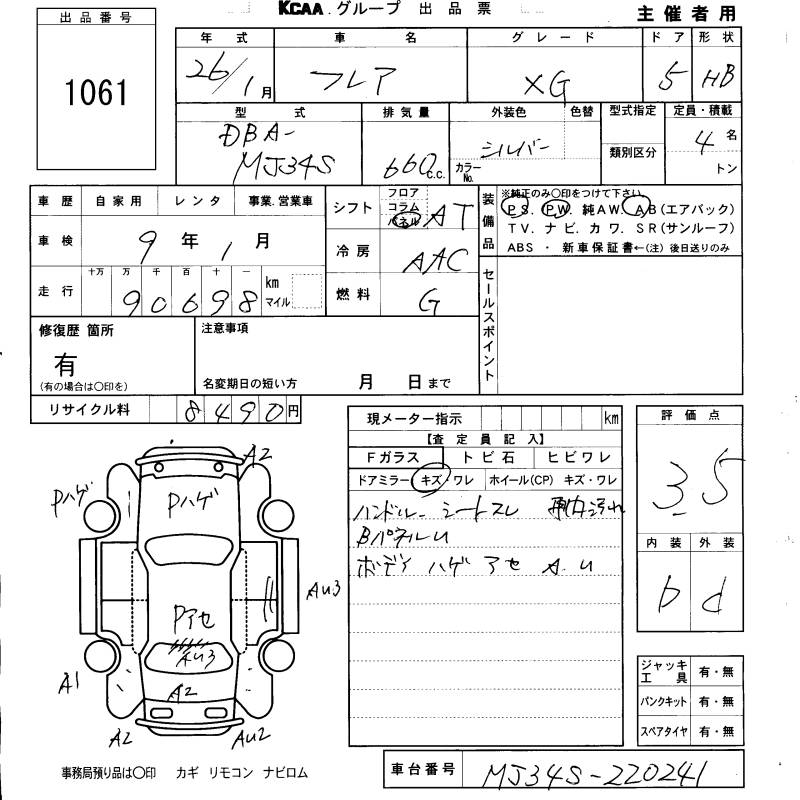 KCAA.グループ 出品票
主催者用
出品番号
1061
年式 車名 グレード ドア 形状
26/1月 フレア XG 5 HB
型式 排気量 外装色 色替 型式指定 定員・積載
DBA-MJ34S 660 c.c. シルバー カラーNo. 類別区分 4名 トン
車歴 自家用 レンタ 事業.営業車
車検 9年1月
走行 十万 万 千 百 十 一 km マイル
90698
シフト フロア コラム パネル AT
冷房 AAC
燃料 G
装備品 ※純正のみ○印をつけて下さい
P S. P W. 純AW. A B (エアバック)
T V. ナビ. カワ. S R (サンルーフ)
ABS ・ 新車保証書←(注) 後日送りのみ
セールスポイント
修復歴 箇所
有
(有の場合は○印を)
注意事項
名変期日の短い方 月 日まで
リサイクル料 8490円
現メーター指示 km
【査定員記入】
Fガラス トビ石 ヒビワレ
ドアミラー キズ・ワレ ホイール(CP) キズ・ワレ
ハンドル シートスレ 汚れ
BパネルU
ボディ ハゲ アセ A.U
評価点
3.5
内装 外装
b d
ジャッキ工具 有・無
パンクキット 有・無
スペアタイヤ 有・無
A2
Pハゲ
Pハゲ
AU3
Pアセ
AU3
A1
A2
A2
AU2
事務局預り品は○印 カギ リモコン ナビロム
車台番号 MJ34S-220241